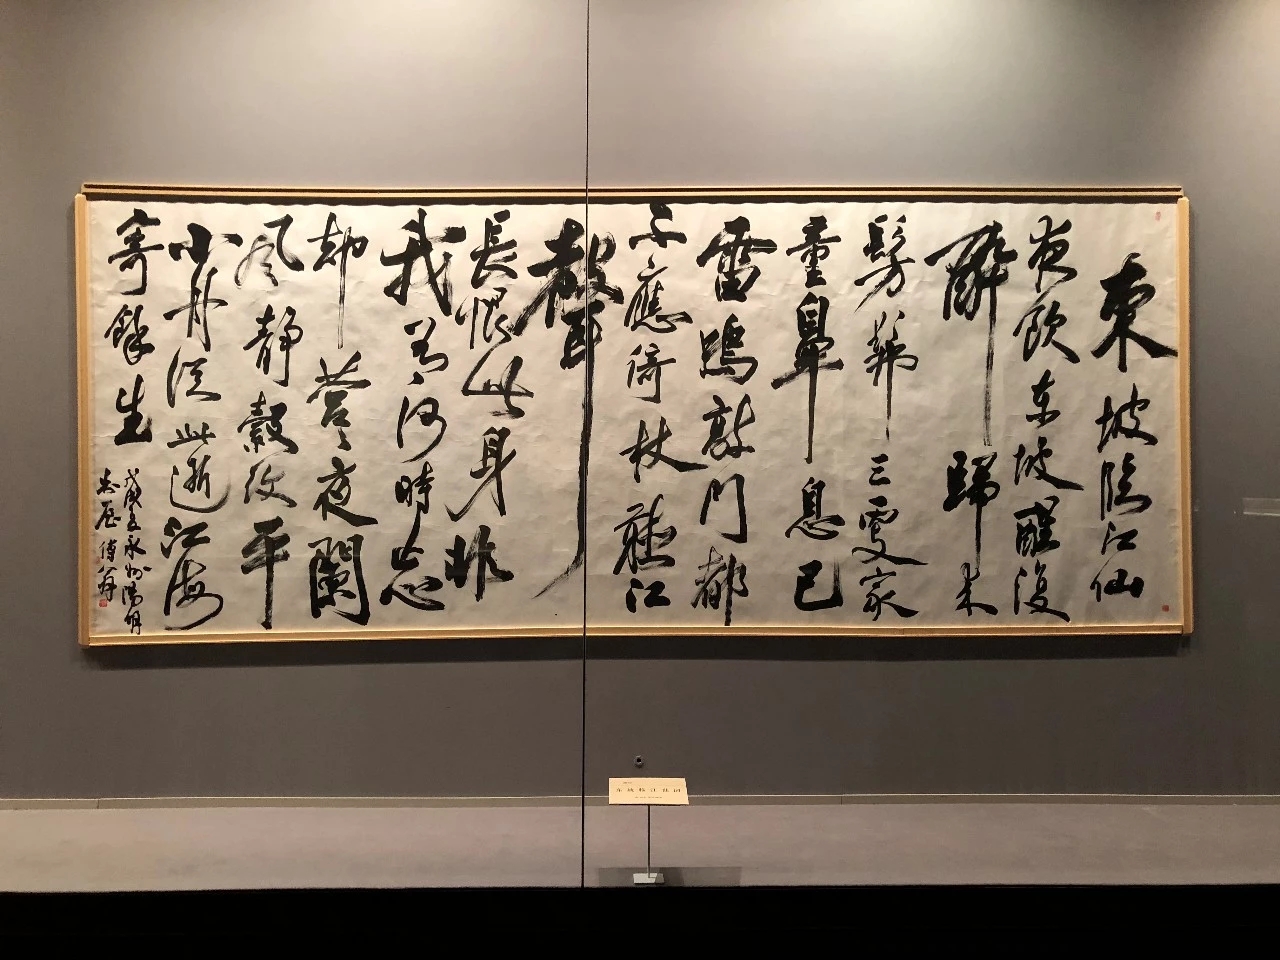 東坡臨江仙
夜飲东坡醒復
醉歸来
髣髴三更家
童鼻息已
雷鳴敲門都
不應倚杖聽江
聲
長恨此身非
我有何時忘
却营〻夜闌
風静縠紋平
小舟從此逝江海
寄餘生
戊戌 永州陽明
东坡临江仙词